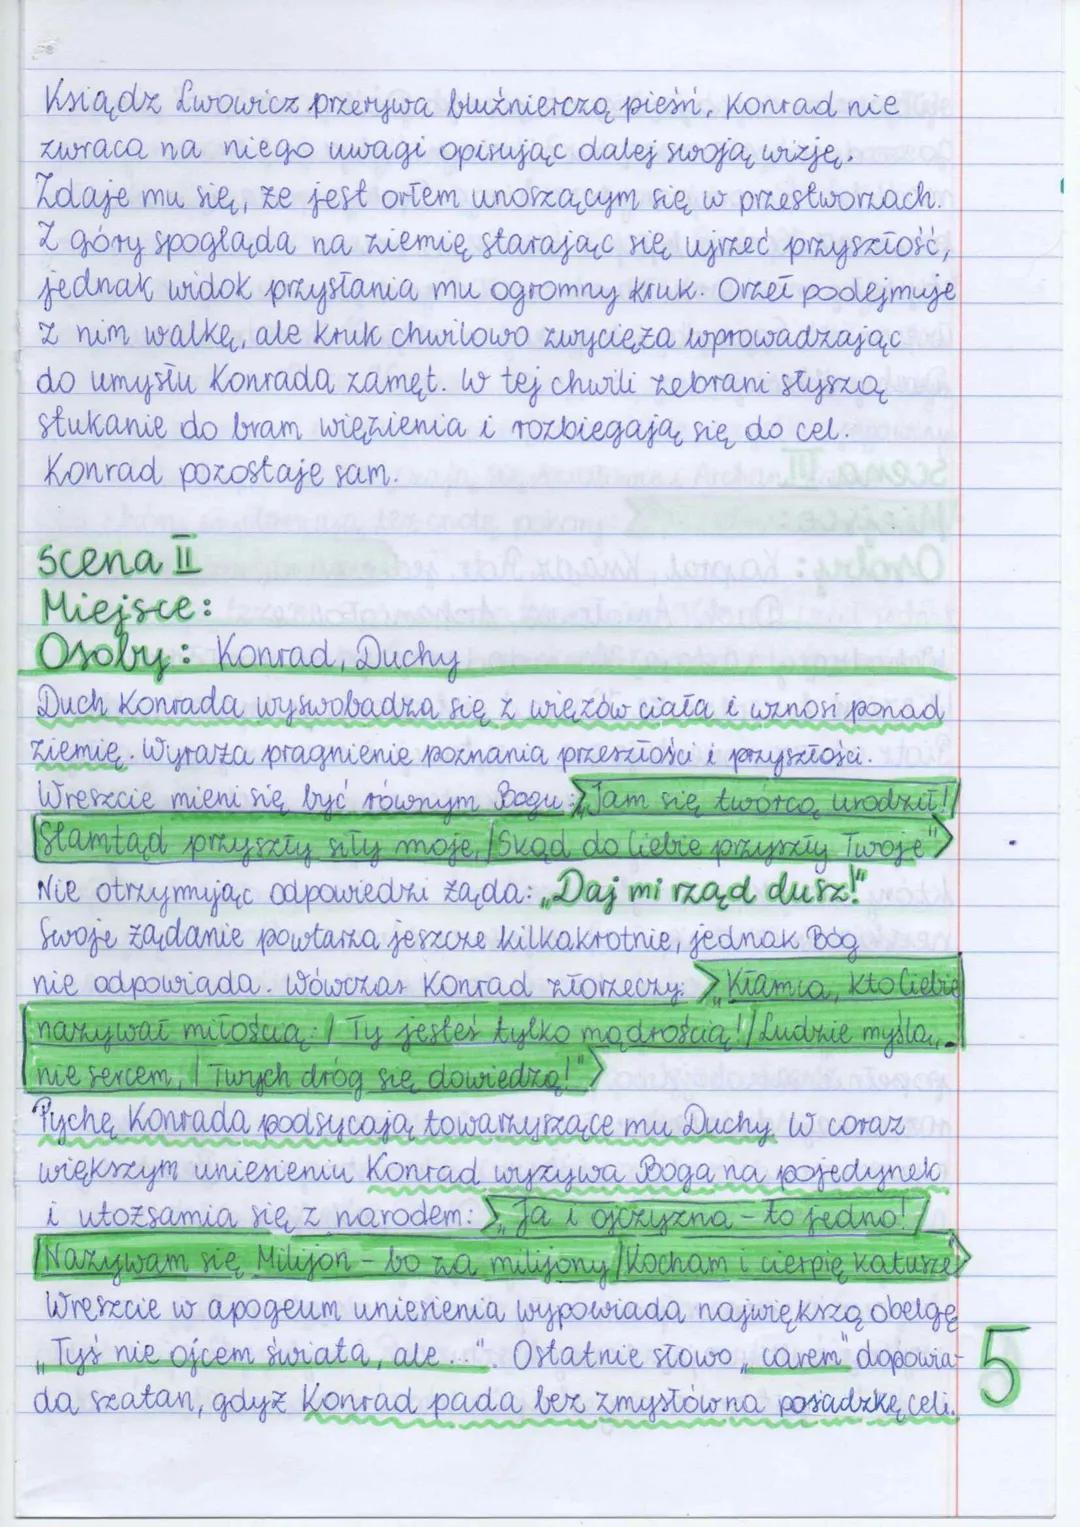 Ksiądz Lwowicz przerywa bluźnierczą pieśń, Konrad nie
zwraca na niego uwagi opisując dalej swoją wizję.
Zdaje mu się, że jest orłem unoszącym się w przestworzach.
Z góry spogląda na ziemię starając się ujrzeć przyszłość,
jednak widok przysłania mu ogromny kruk. Orzeł podejmuje
z nim walkę, ale kruk chwilowo zwycięża wprowadzając
do umysłu Konrada zamęt. W tej chwili zebrani słyszą
stukanie do bram więzienia i rozbiegają się do cel.
Konrad pozostaje sam.
Scena II
Miejsce:
Osoby: Konrad, Duchy
Duch Konrada wyswobadza się z więzów ciała i wznosi ponad
ziemię. Wyraża pragnienie poznania przeszłości i przyszłości.
Wreszcie mieni się być równym Bogu: „Jam się twórcą urodził!/
/Stamtąd przyszły siły moje,/Skąd do Ciebie przyszły Twoje"
Nie otrzymując odpowiedzi żąda: „Daj mi rząd dusz!"
Swoje żądanie powtarza jeszcze kilkakrotnie, jednak Bóg
nie odpowiada. Wówczas Konrad złorzeczy: „Kłamca, kto Ciebie
nazywał miłością:/ Ty jesteś tylko mądrością!/Ludzie myślą,
nie sercem,/ Twych dróg się dowiedzą!"
Pychę Konrada podsycają towarzyszące mu Duchy. W coraz
większym uniesieniu Konrad wyzywa Boga na pojedynek
i utożsamia się z narodem: „Ja i ojczyzna – to jedno!/
/Nazywam się Milijon – bo za milijony/Kocham i cierpię katusze"
Wreszcie w apogeum uniesienia wypowiada największą obelgę
„Tyś nie ojcem świata, ale ...". Ostatnie słowo „carem" dopowia-
da szatan, gdyż Konrad pada bez zmysłów na posadzkę celi.
5